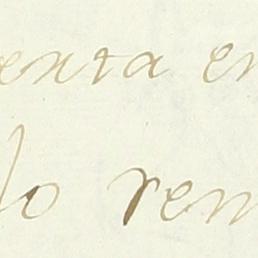 enta en
lo rem